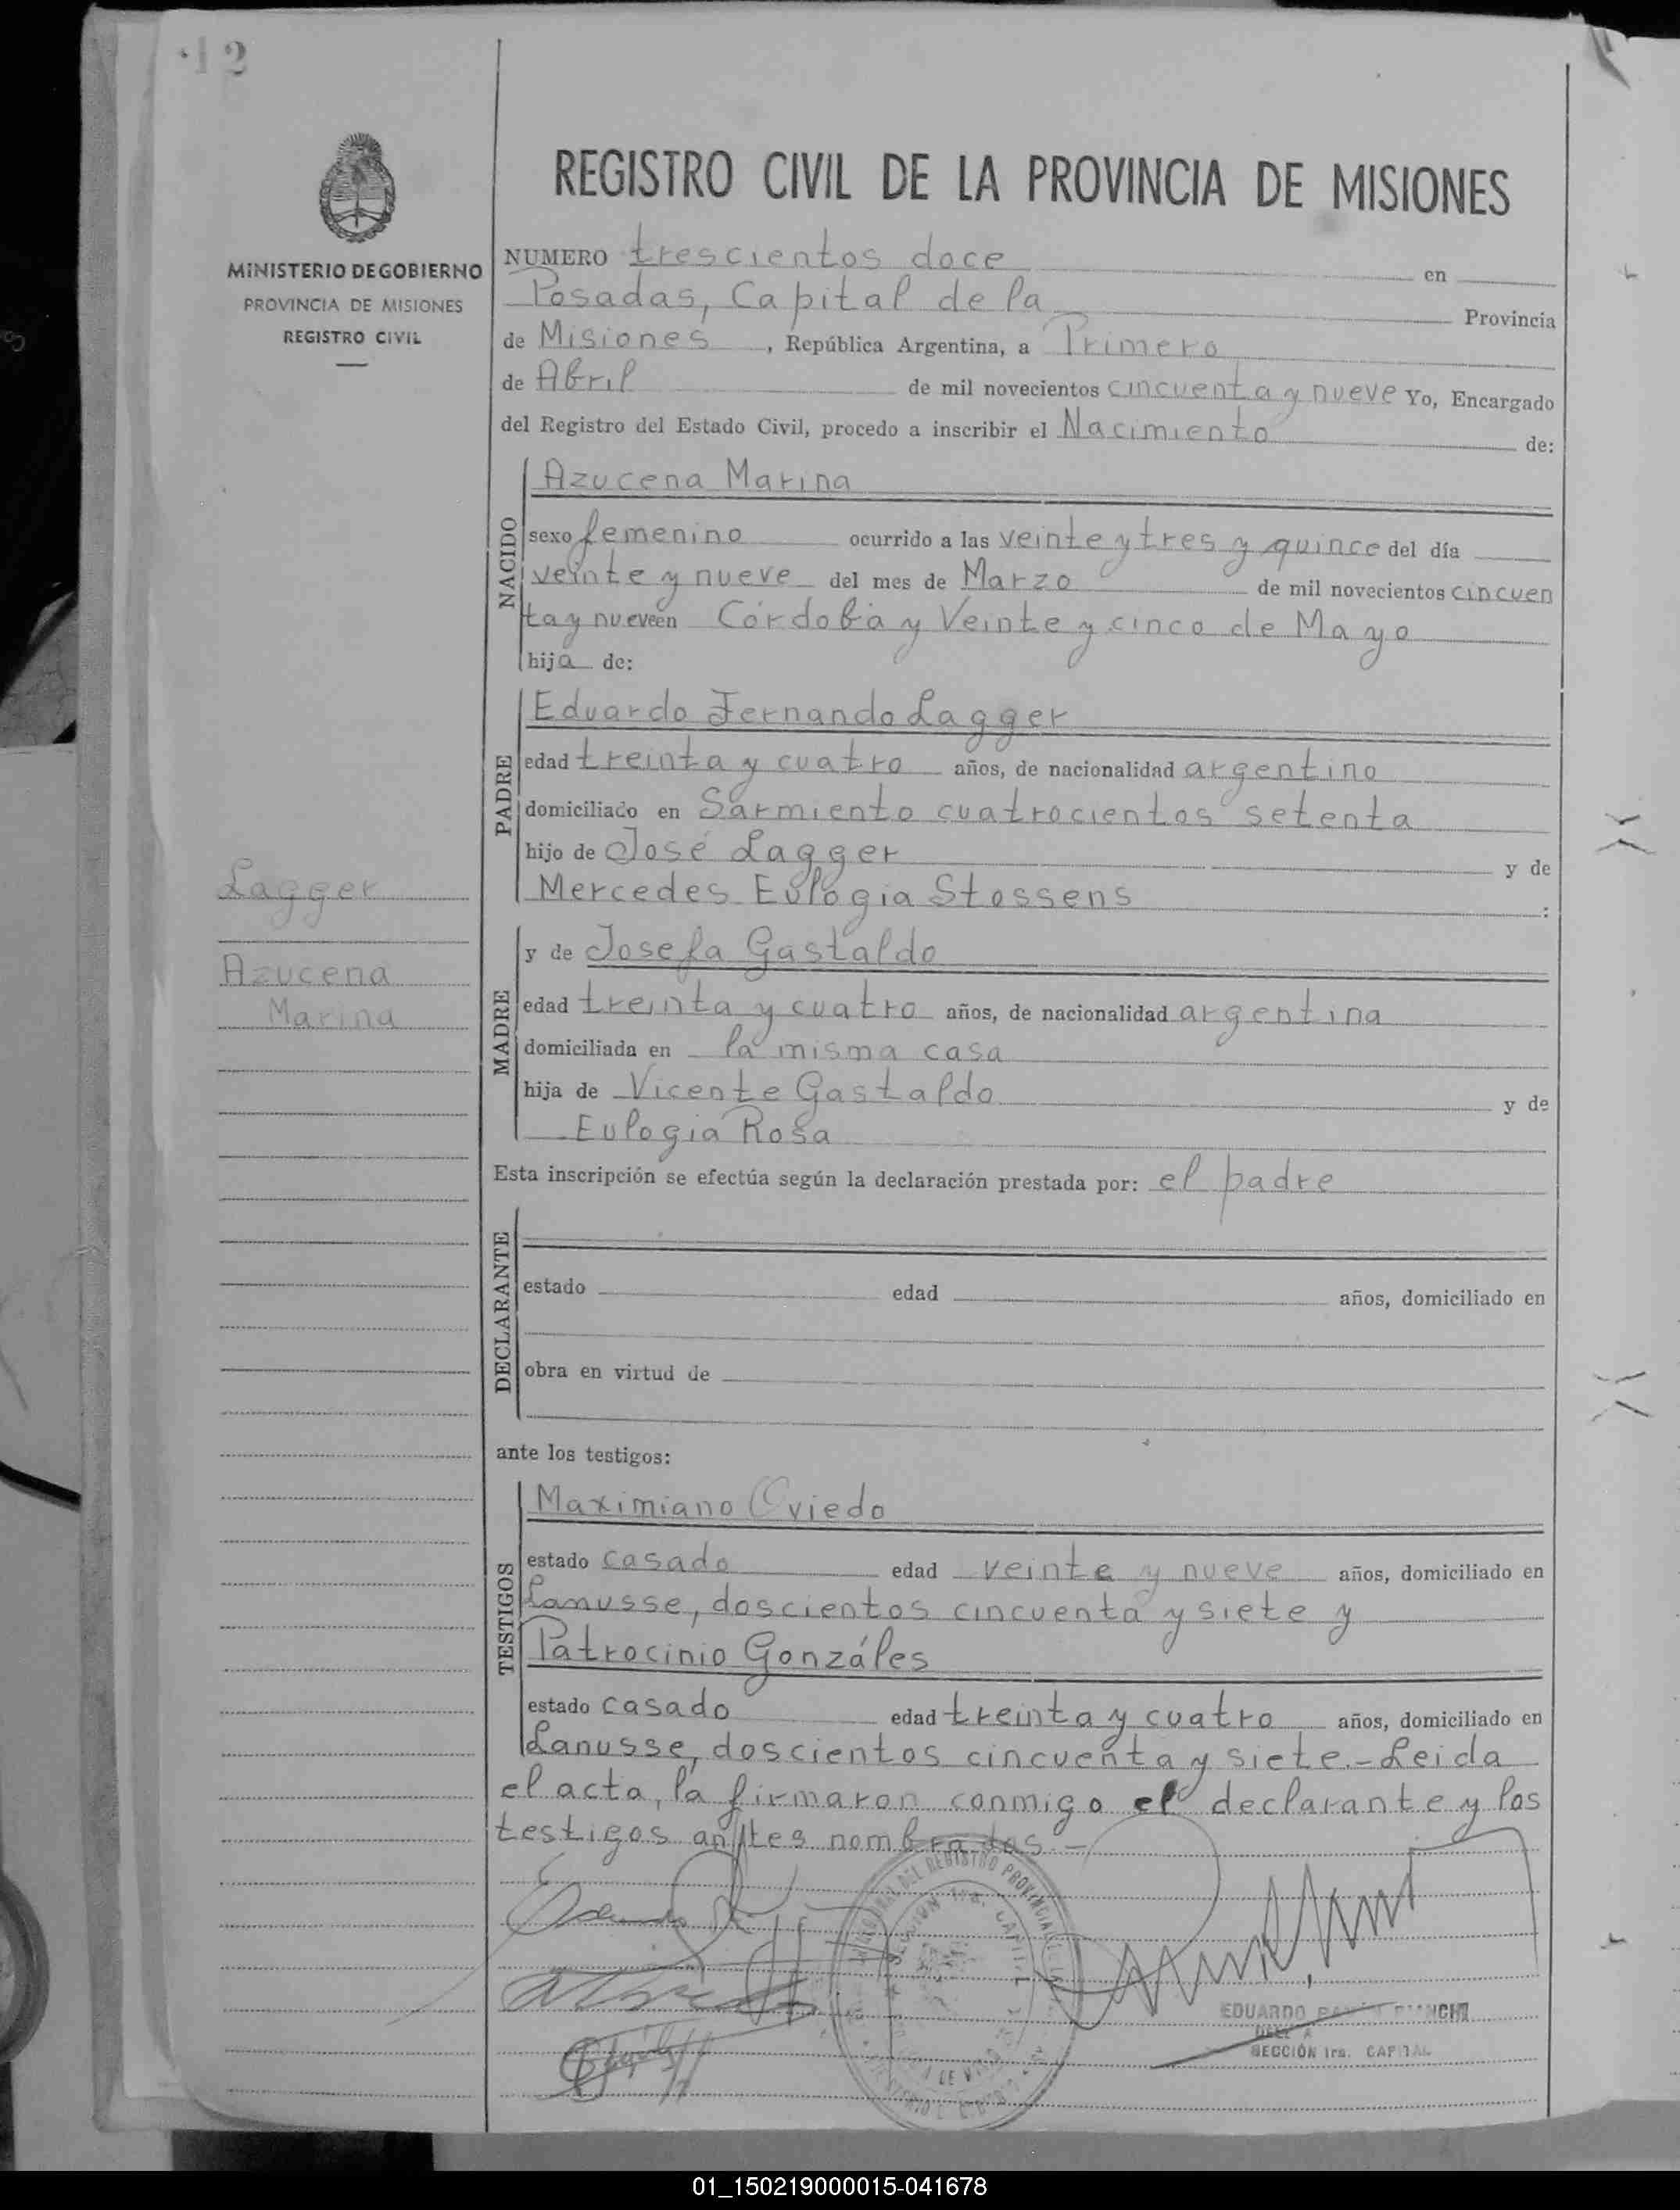 12
MINISTERIO DE GOBIERNO
PROVINCIA DE MISIONES
REGISTRO CIVIL
Lagger
Azucena
Marina
REGISTRO CIVIL DE LA PROVINCIA DE MISIONES
NUMERO trescientos doce en
Posadas, Capital de la Provincia
de Misiones, República Argentina, a Primero
de Abril de mil novecientos cincuenta y nueve Yo, Encargado
del Registro del Estado Civil, procedo a inscribir el Nacimiento de:
NACIDO
Azucena Marina
sexo femenino ocurrido a las veinte y tres y quince del día
veinte y nueve del mes de Marzo de mil novecientos cincuen
ta y nueve en Córdoba y Veinte y cinco de Mayo
hija de:
PADRE
Eduardo Fernando Lagger
edad treinta y cuatro años, de nacionalidad argentino
domiciliado en Sarmiento cuatrocientos setenta
hijo de José Lagger y de
Mercedes Eulogia Stossens :
MADRE
y de Josefa Gastaldo
edad treinta y cuatro años, de nacionalidad argentina
domiciliada en la misma casa
hija de Vicente Gastaldo y de
Eulogia Rosa
Esta inscripción se efectúa según la declaración prestada por: el padre
DECLARANTE
estado edad años, domiciliado en
obra en virtud de
ante los testigos:
TESTIGOS
Maximiano Oviedo
estado casado edad veinte y nueve años, domiciliado en
Lanusse, doscientos cincuenta y siete y
Patrocinio Gonzáles
estado casado edad treinta y cuatro años, domiciliado en
Lanusse, doscientos cincuenta y siete.- Leida
el acta, la firmaron conmigo el declarante y los
testigos antes nombrados.-
EDUARDO
SECCIÓN 1ra. CAPITAL
01_150219000015-041678